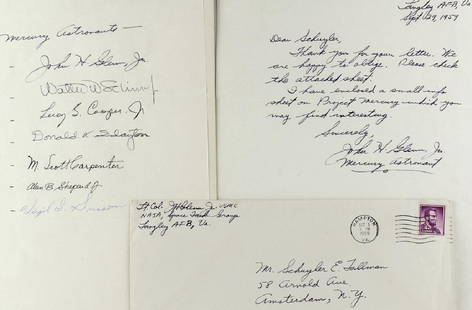 Mercury Astronauts —
John H Glenn, Jr
Walter M Schirra, Jr
Leroy G. Cooper, Jr
Donald K Slayton
M. Scott Carpenter
Alan B. Shepard Jr
Virgil I. Grissom
Langley AFB, Va.
Sept 29, 1959
Dear Schuyler,
Thank you for your letter. We
are happy to oblige. Please check
the attached sheet.
I have enclosed a small info
sheet on Project Mercury which you
may find interesting.
Sincerely,
John H Glenn, Jr
Mercury Astronaut
Lt Col. JH Glenn Jr USMC
NASA, Space Task Group
Langley AFB, Va.
HAMPTON
VA.
Mr. Schuyler E. Tallman
58 Arnold Ave
Amsterdam, N.Y.